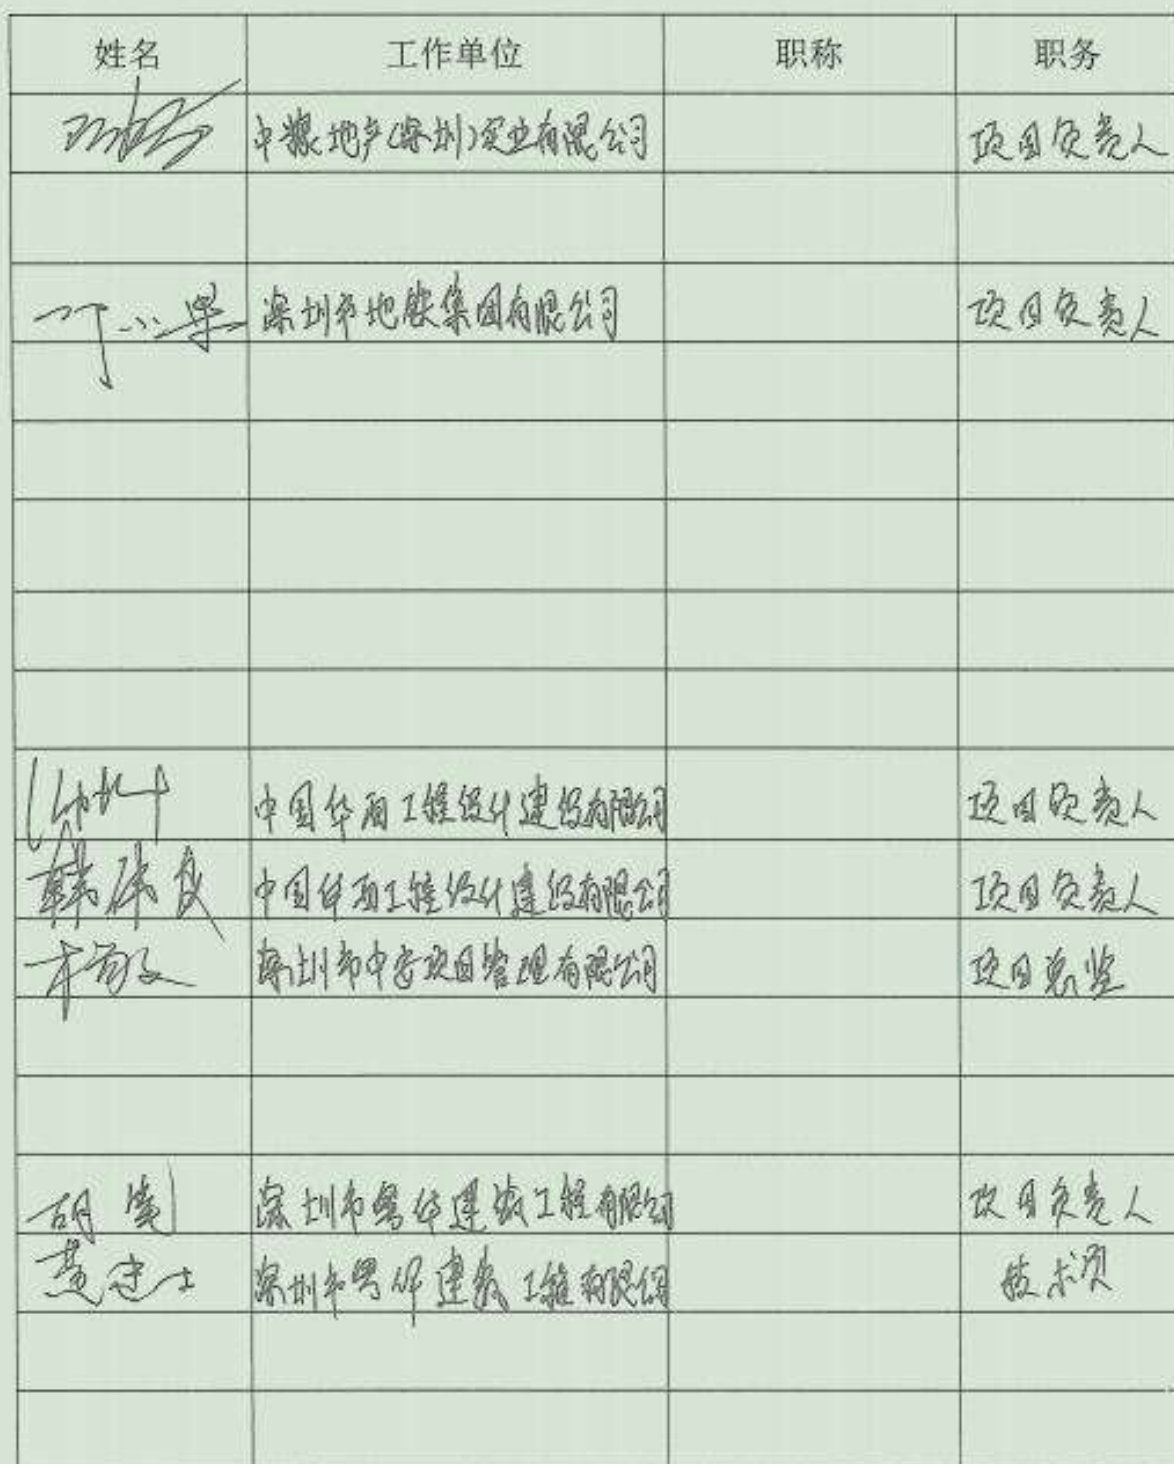 姓名 工作单位 职称 职务
中粮地产(深圳)实业有限公司 项目负责人
深圳市地铁集团有限公司 项目负责人
中国华西工程设计建设有限公司 项目负责人
韩伟良 中国华西工程设计建设有限公司 项目负责人
深圳市中安项目管理有限公司 项目总监
胡 深圳市粤华建设工程有限公司 项目负责人
黄建士 深圳市粤华建设工程有限公司 技术员